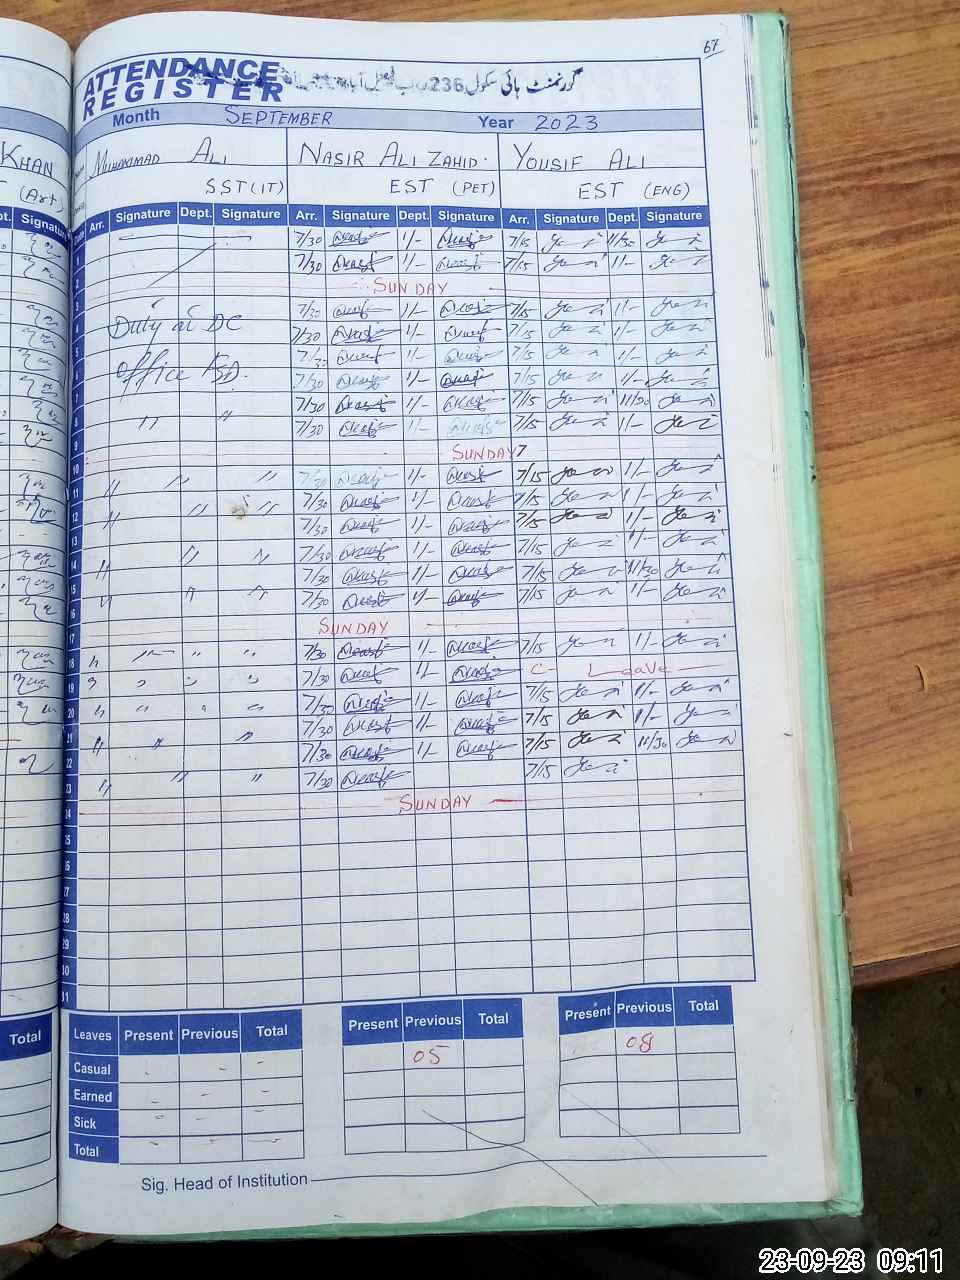 67
ATTENDANCE
REGISTER
گورنمنٹ ہائی سکول 236
Month SEPTEMBER Year 2023
KHAN MUHAMMAD ALI NASIR ALI ZAHID. YOUSIF ALI
(Art) SST(IT) EST (PET) EST (ENG)
Signature Arr. Signature Dept. Signature Arr. Signature Dept. Signature Arr. Signature Dept. Signature
7/30 1/- 7/15 11/30
1 7/30 1/- 7/15 1/-
2 SUNDAY
3 7/30 1/- 7/15 1/-
4 Duty at DC 7/30 1/- 7/15 1/-
5 7/30 1/- 7/15 1/-
6 office FSD. 7/30 1/- 7/15 1/-
7 7/30 1/- 7/15 11/30
8 " " 7/30 1/- 7/15 1/-
9 SUNDAY
10 7/30 1/- 7/15 1/-
11 " " " 7/30 1/- 7/15 1/-
12 " " " 7/30 1/- 7/15 1/-
13 7/30 1/- 7/15 1/-
14 " " " 7/30 1/- 7/15 11/30
15 " " " 7/30 1/- 7/15 1/-
16 SUNDAY
17 7/30 1/- 7/15 1/-
18 " " " 7/30 1/- C- Leave
19 " " " " 7/30 1/- 7/15 1/-
20 " " " " 7/30 1/- 7/15 1/-
21 " " " 7/30 1/- 7/15 11/30
22 7/30 7/15
23 " " "
24 SUNDAY
25
26
27
28
29
30
31
Total Leaves Present Previous Total Present Previous Total Present Previous Total
Casual - - - 05 08
Earned - - -
Sick - - -
Total - - -
Sig. Head of Institution
23-09-23 09:11